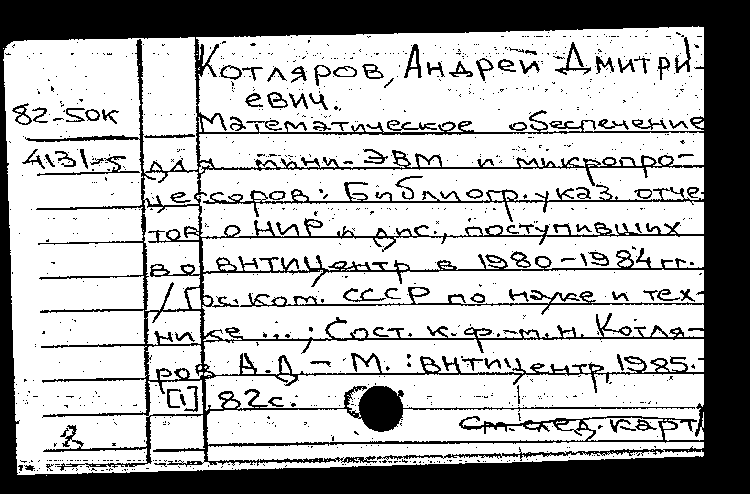 Котляров, Андрей Дмитри-
евич.
82-50к
Математическое обеспечение
4131-5 для мини-ЭВМ и микропро-
цессоров: Библиогр. указ. отче-
тов о НИР и дис., поступивших
во ВНТИЦентр в 1980-1984 гг.
/ Гос. ком. СССР по науке и тех-
нике ...; Сост. к.ф.-м.н. Котля-
ров А.Д. - М.: ВНТИЦентр, 1985. -
[1], 82 с.
см. след. карт.
2